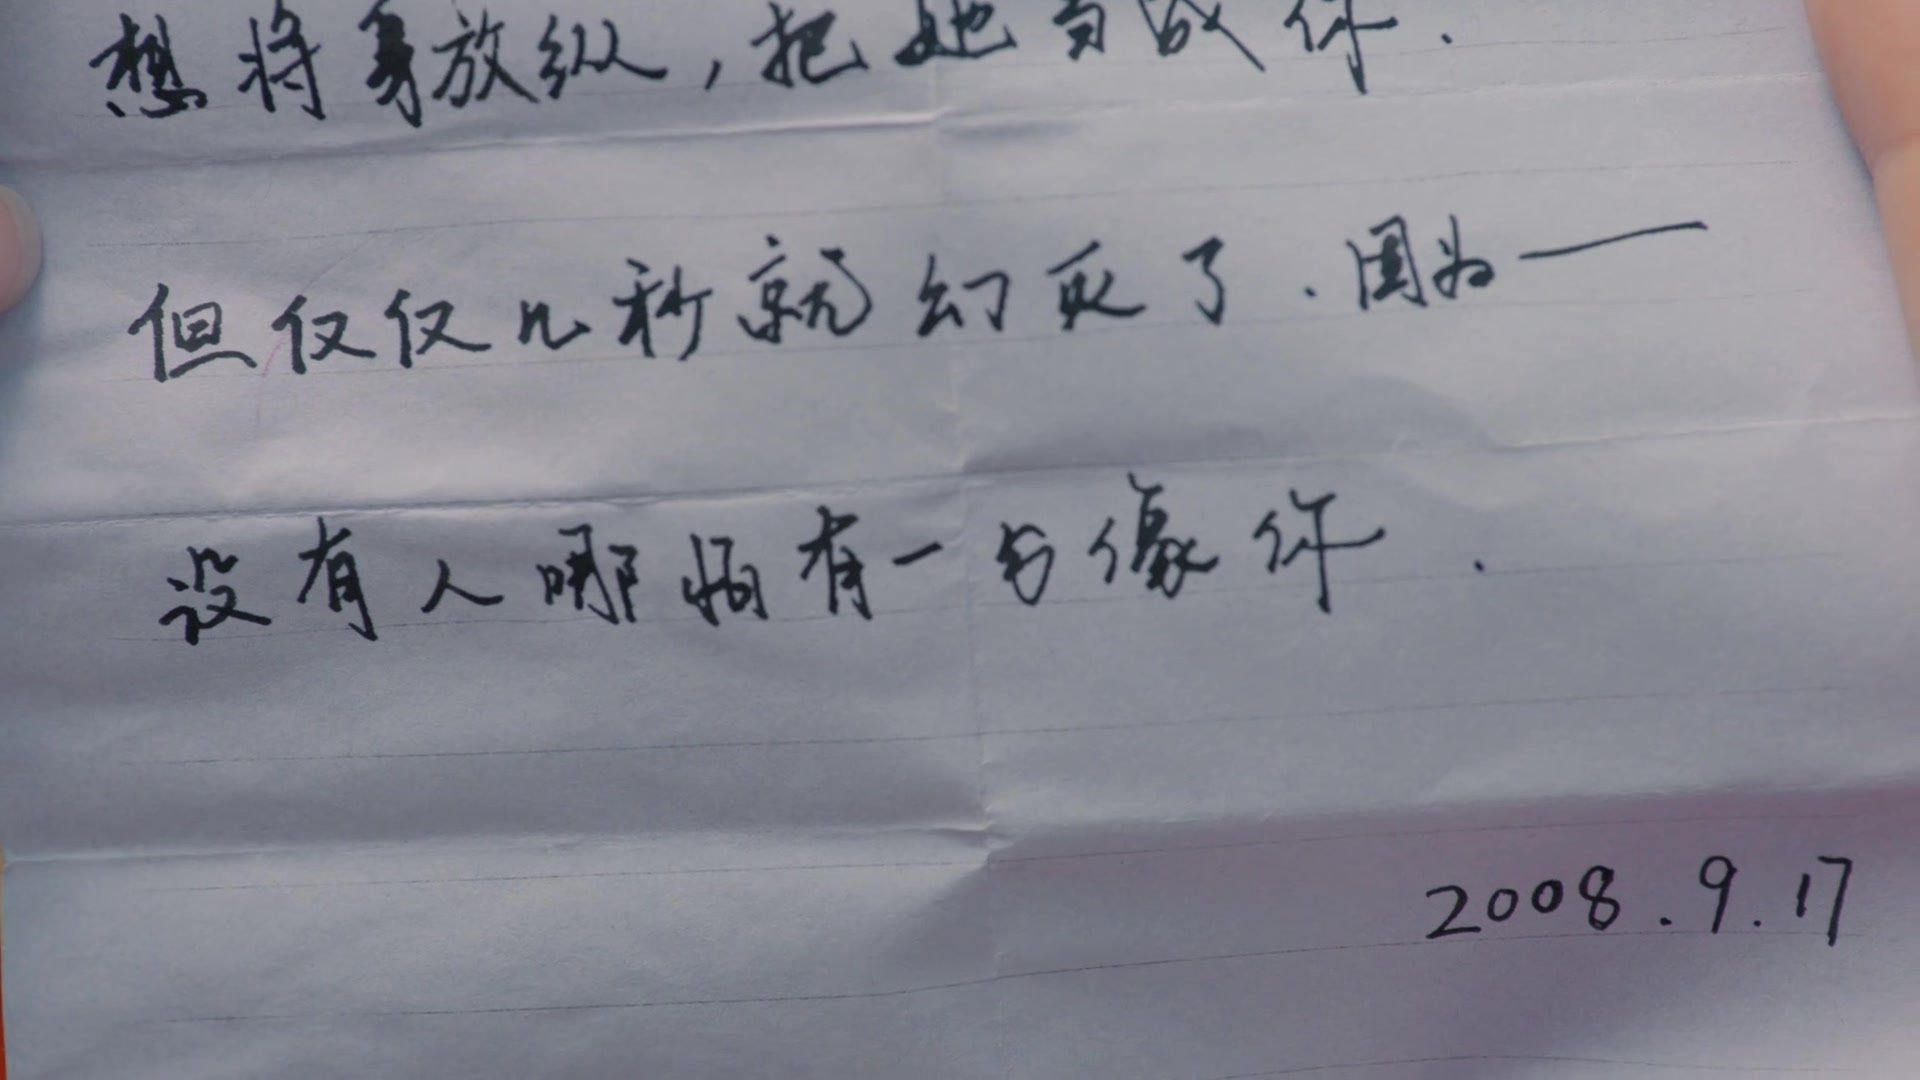 想将身放纵，把她当成你.
但仅仅几秒就幻灭了.因为——
没有人哪怕有一方像你.
2008.9.17